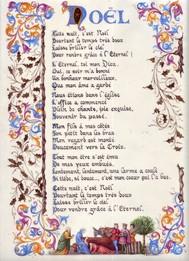 NOËL
Cette nuit, c'est Noël
Pourtant le temps très doux
Laisse briller le ciel
Pour rendre grâce à l'Eternel !
L'Eternel, toi mon Dieu,
Qui, ce soir m'a donné
Un bonheur merveilleux,
Que mon âme a gardé
Nous étions dans l'église
L'office a commencé
Plein de chants, joie exquise,
Souvenir du passé.
Mon fils à mes côtés
Son petit dans les bras
Mon regard est monté
Doucement vers la Croix.
Tout mon être s'est ému
De mes yeux embués
Lentement, lentement, une larme a coulé
Si tiède, si douce... c'est mon cœur qui l'a bue.
Cette nuit, c'est Noël
Pourtant le temps très doux
Laisse briller le ciel
Pour rendre grâce à l'Eternel.